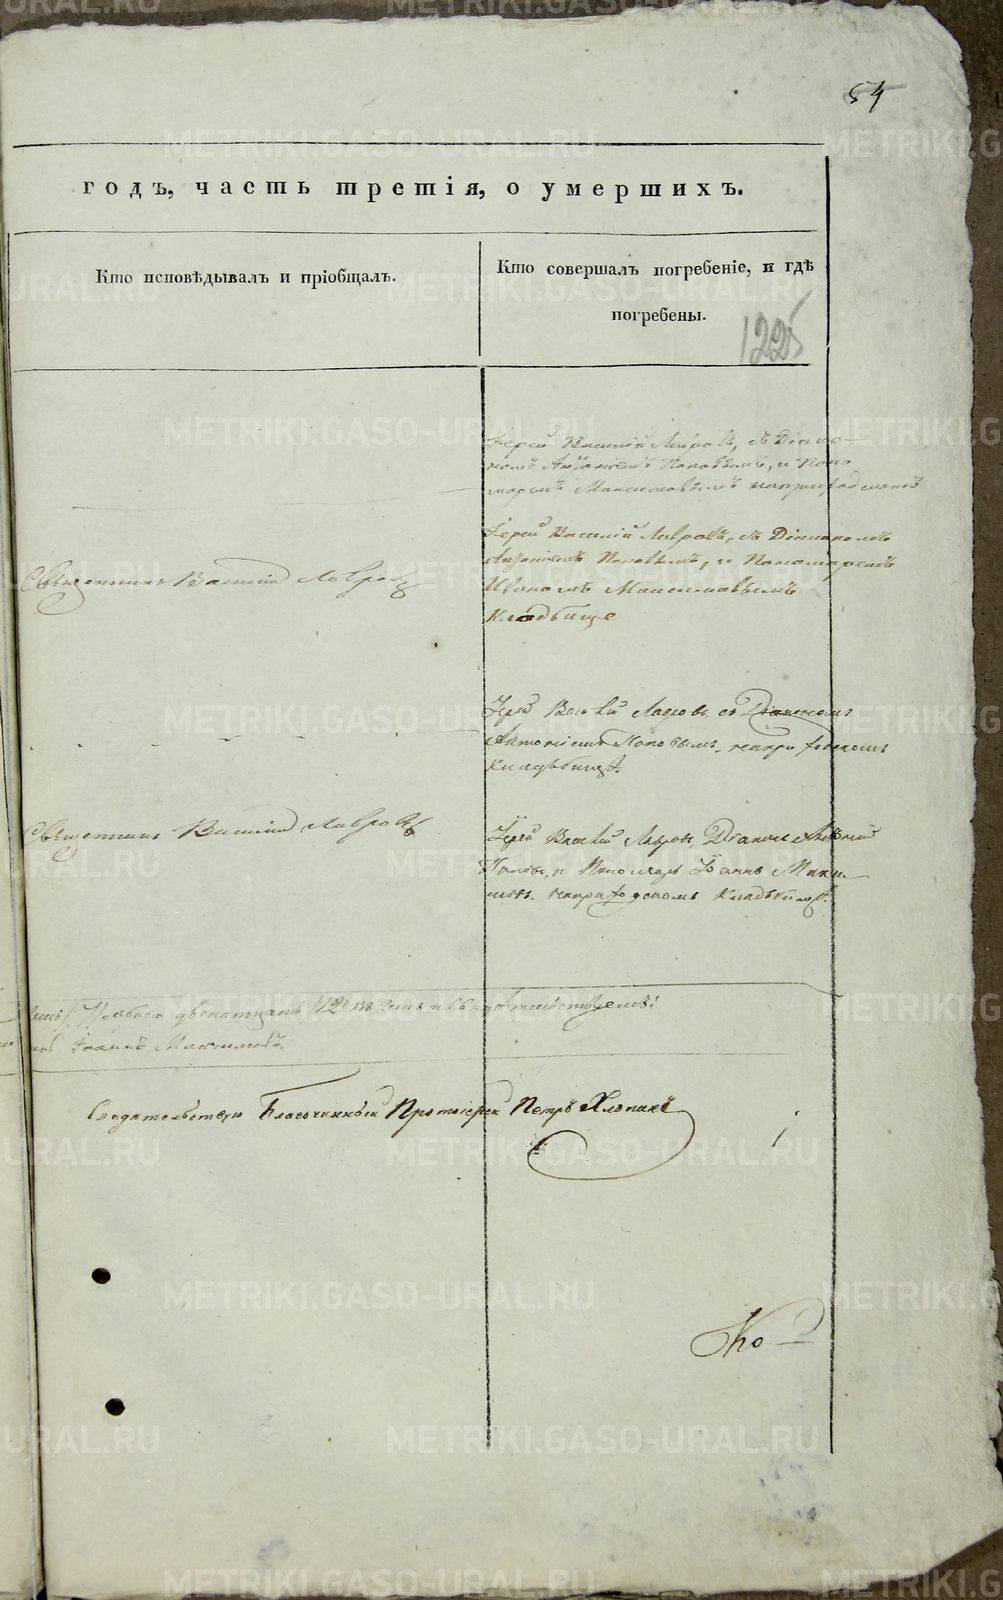 54
годъ, часть третія, о умершихъ.
Кто исповѣдывалъ и пріобщалъ.
Кто совершалъ погребеніе, и гдѣ
погребены.
1225
Іерей Василій Лавровъ, съ Діако-
номъ Антоніемъ Поповымъ, и Поно
маремъ Максимовымъ
Священникъ Василій Лавровъ
Іерей Василій Лавровъ, съ Діакономъ
Антоніемъ Поповымъ, и Пономаремъ
Иваномъ Максимовымъ
Кладбище
Іерей Василій Лавровъ съ Діакономъ
Антоніемъ Поповымъ,
Кладбищѣ.
Священникъ Василій Лавровъ
Іерей Василій Лавровъ, Діаконъ Антоній
Поповъ, и Пономарь Іоаннъ Макси-
мовъ. Кладбищѣ.
двенатцать /12/
Іоаннъ Максимовъ.
Свидетельствую Благочинный Протоіерей Петръ
Ко
METRIKI.GASO-URAL.RU